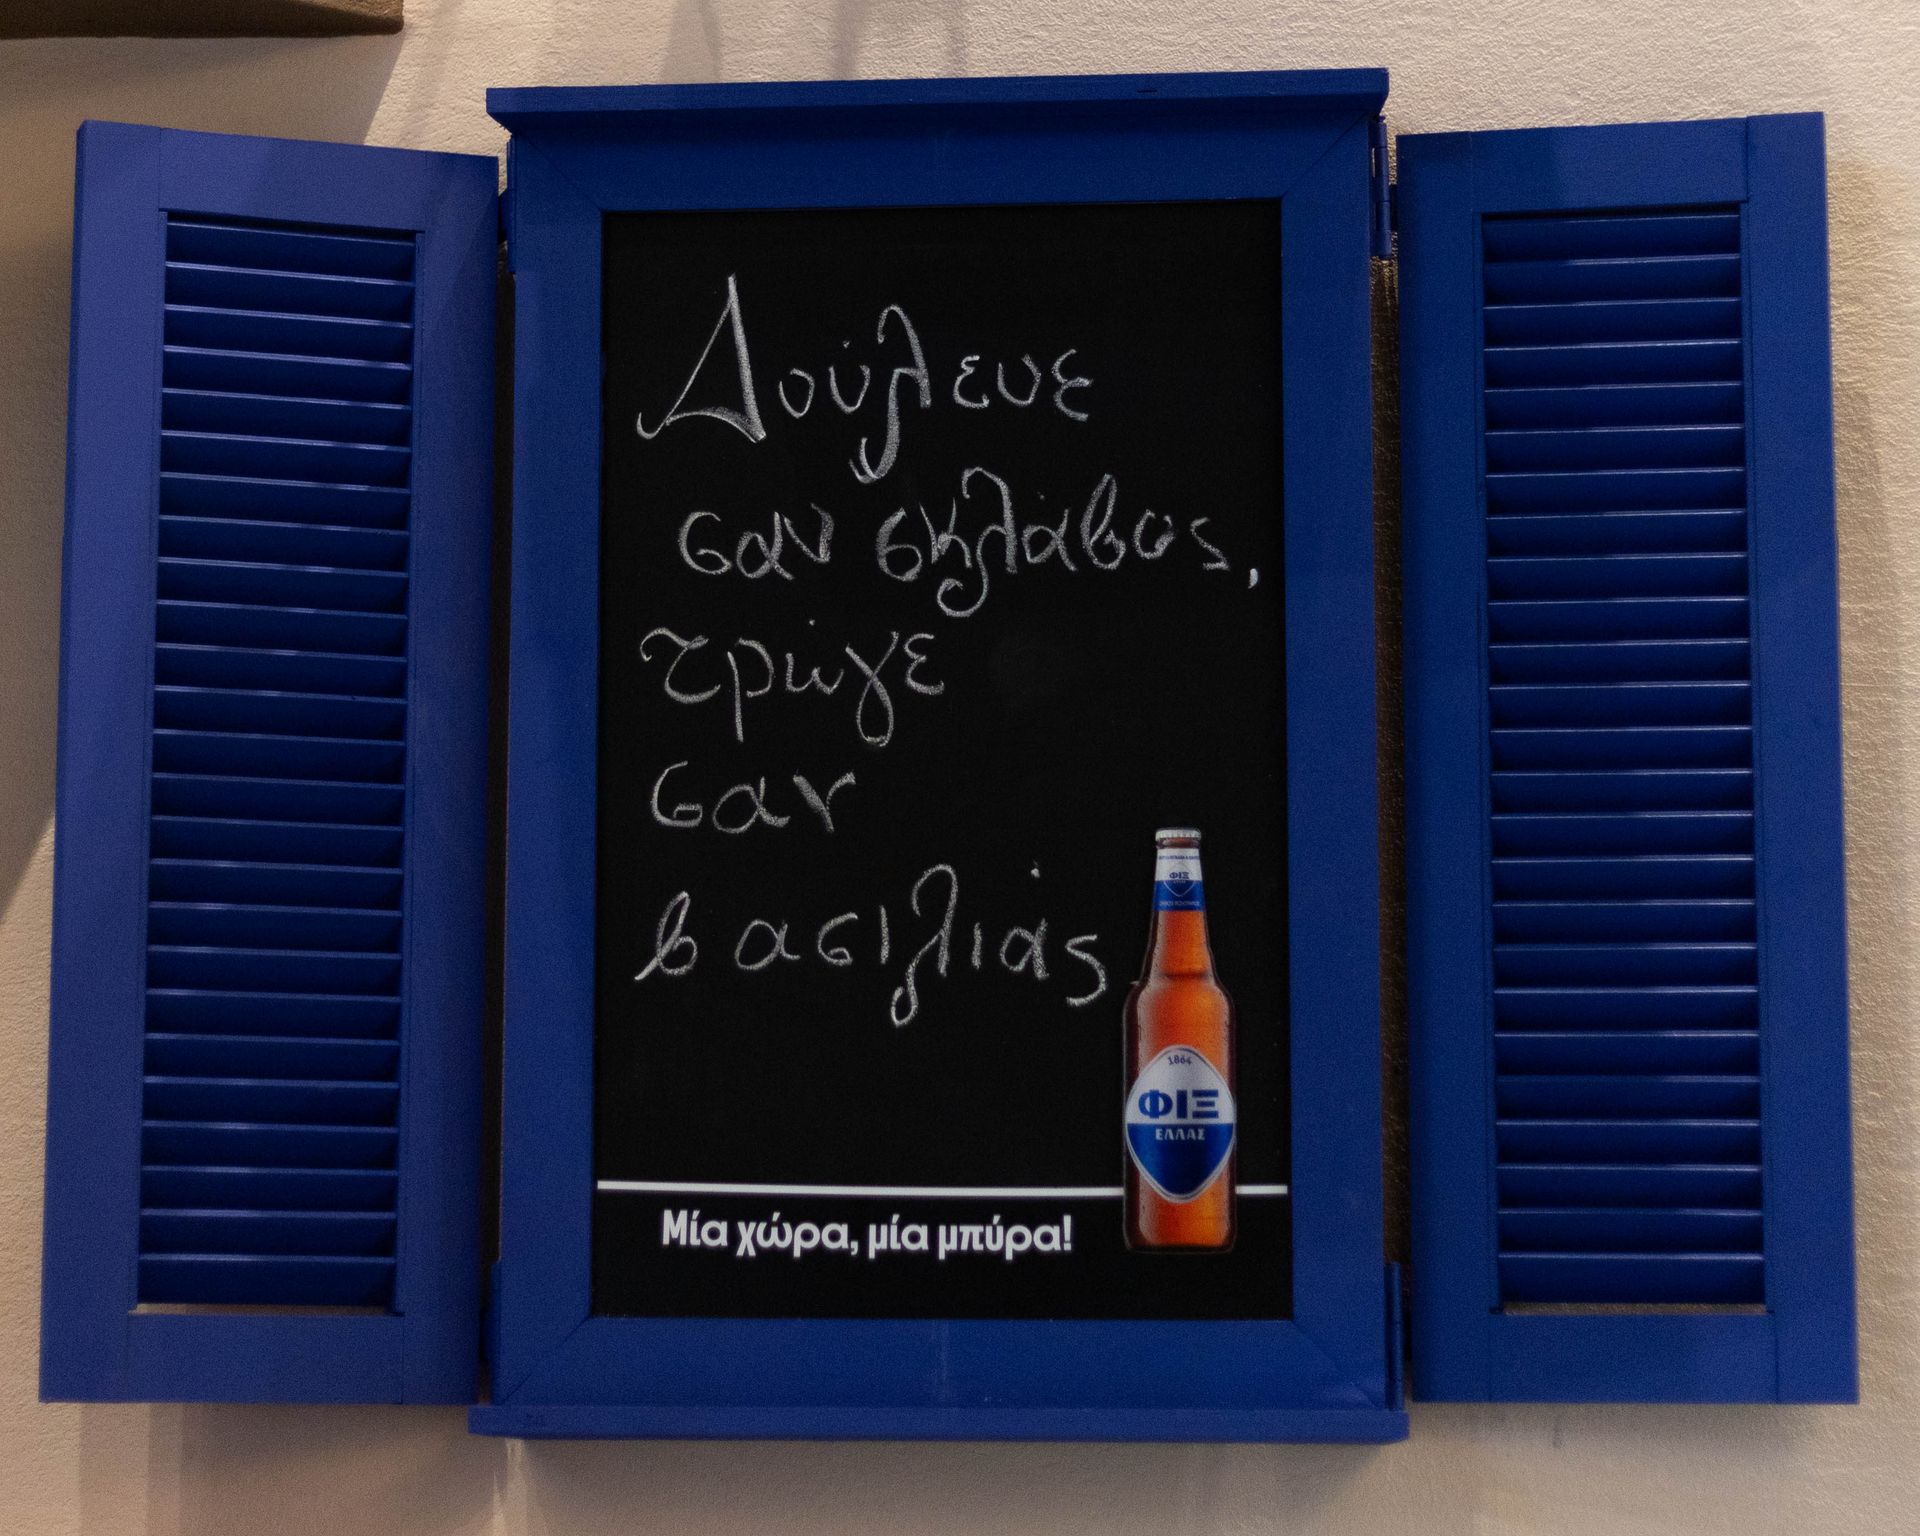 Δούλευε
σαν σκλάβος,
τρώγε
σαν
βασιλιάς
ΦΙΞ
1864
ΦΙΞ
ΕΛΛΑΣ
Μία χώρα, μία μπύρα!